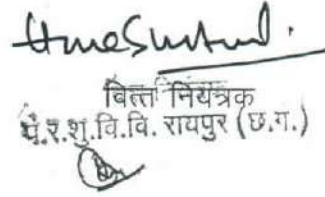 वित्त नियंत्रक
पं.र.शु.वि.वि. रायपुर (छ.ग.)